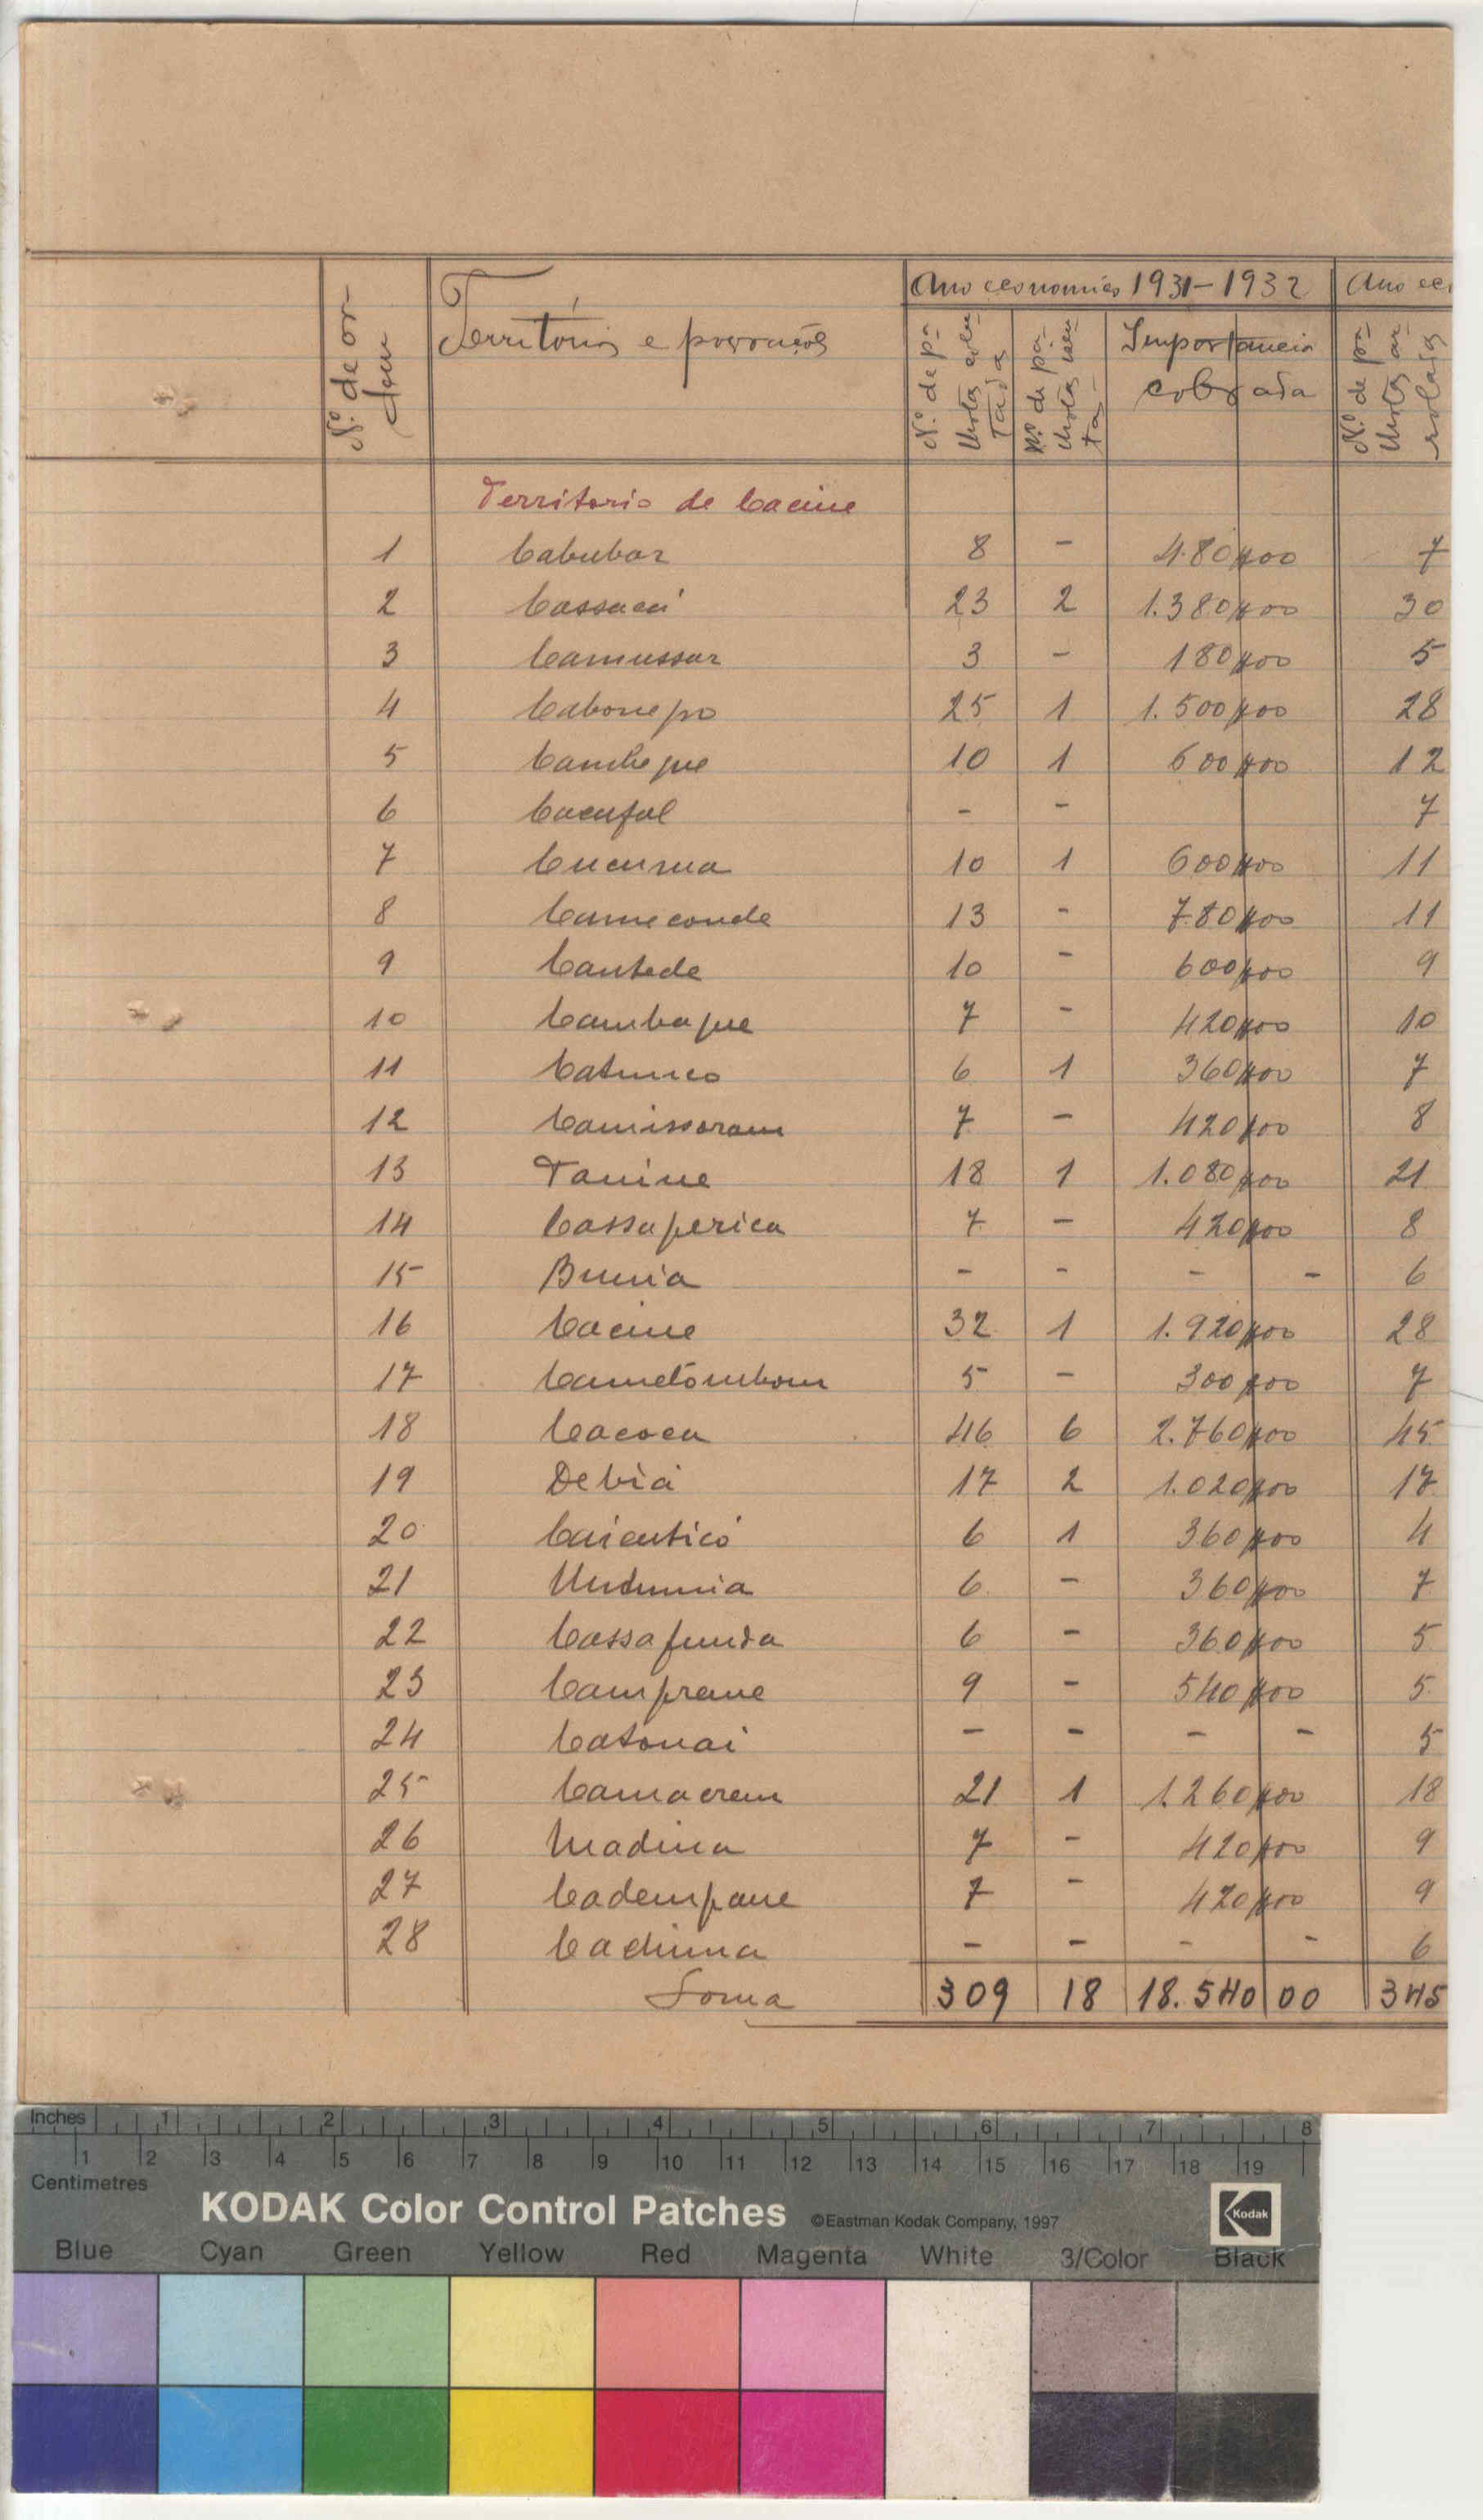 Nº de or-
dem
Território e povoações
Ano economico 1931-1932
Ano ec
Nº de pa-
lhotas
tadas
Nº de pa-
lhotas isen-
tas
Importancia
cobrada
Nº de pa-
lhotas ar-
roladas
Territorio de Cacine
1 Cabubar 8 - 480$00 7
2 Cassacá 23 2 1.380$00 30
3 Camussar 3 - 180$00 5
4 Cabonepo 25 1 1.500$00 28
5 Canchepue 10 1 600$00 12
6 Cacafal - - 7
7 10 1 600$00 11
8 Cameconde 13 - 780$00 11
9 Cantede 10 - 600$00 9
10 Cambaque 7 - 420$00 10
11 6 1 360$00 7
12 Camissoram 7 - 420$00 8
13 Tanine 18 1 1.080$00 21
14 Cassaperica 7 - 420$00 8
15 Bunia - - - - 6
16 Cacine 32 1 1.920$00 28
17 5 - 300$00 7
18 Cacoca 46 6 2.760$00 45
19 Debiá 17 2 1.020$00 17
20 6 1 360$00 4
21 6 - 360$00 7
22 Cassafunda 6 - 360$00 5
23 Camprene 9 - 540$00 5
24 Catonai - - - - 5
25 Camacrem 21 1 1.260$00 18
26 Madina 7 - 420$00 9
27 Cadempane 7 - 420$00 9
28 - - - - 6
Soma 309 18 18.540 00 345
Inches 1 2 3 4 5 6 7 8
1 2 3 4 5 6 7 8 9 10 11 12 13 14 15 16 17 18 19
Centimetres
KODAK Color Control Patches ©Eastman Kodak Company, 1997 Kodak
Blue Cyan Green Yellow Red Magenta White 3/Color Black